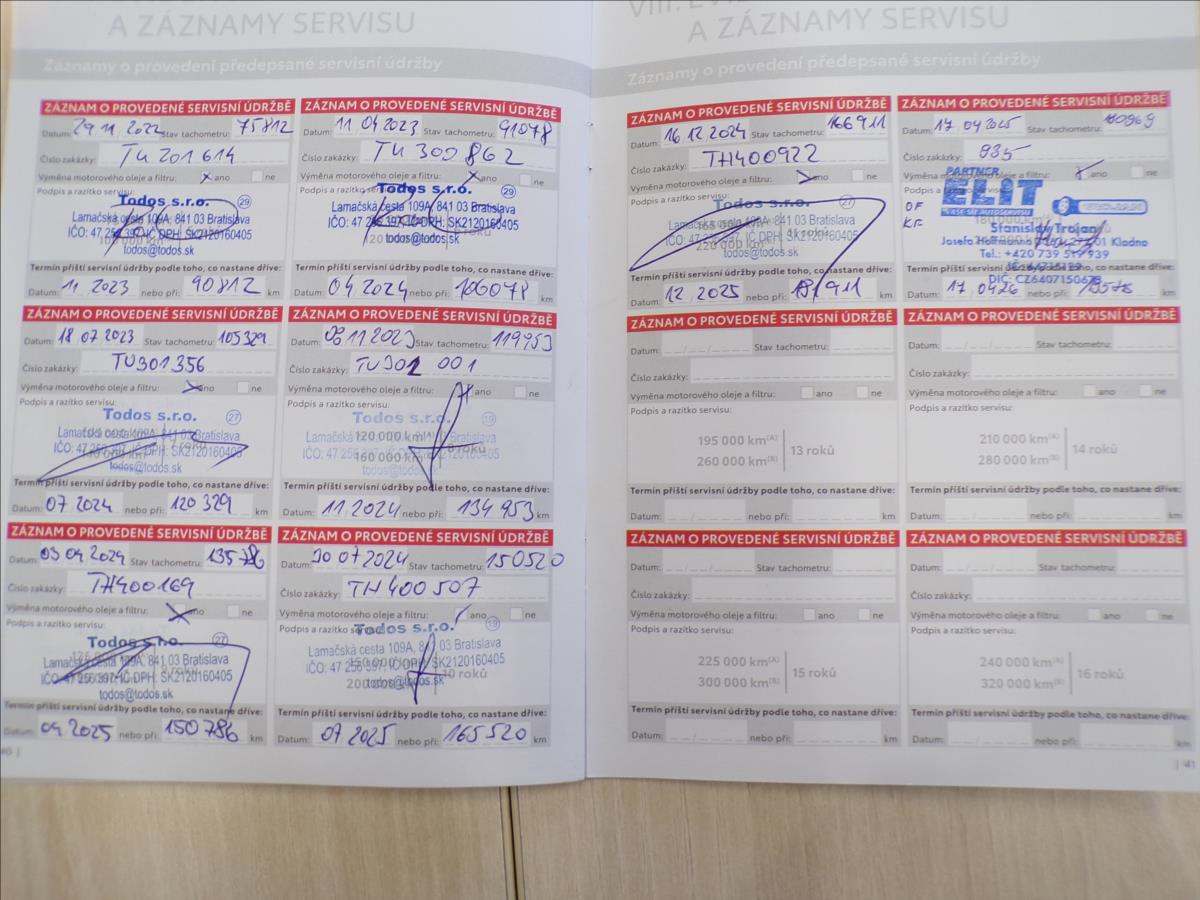 A ZÁZNAMY SERVISU
Záznamy o provedení předepsané servisní údržby
ZÁZNAM O PROVEDENÉ SERVISNÍ ÚDRŽBĚ
Datum: 29 11 2022 Stav tachometru: 75812
Číslo zakázky: TU 201 614
Výměna motorového oleje a filtru: x ano ne
Podpis a razítko servisu:
Todos s.r.o. 29
Lamačská cesta 109A, 841 03 Bratislava
IČO: 47 256 397, IČ DPH: SK2120160405
todos@todos.sk
Termín příští servisní údržby podle toho, co nastane dříve:
Datum: 11 2023 nebo při: 90812 km
ZÁZNAM O PROVEDENÉ SERVISNÍ ÚDRŽBĚ
Datum: 11 04 2023 Stav tachometru: 91078
Číslo zakázky: TU 300 862
Výměna motorového oleje a filtru: x ano ne
Podpis a razítko servisu:
Todos s.r.o. 29
Lamačská cesta 109A, 841 03 Bratislava
IČO: 47 256 397, IČ DPH: SK2120160405
todos@todos.sk
Termín příští servisní údržby podle toho, co nastane dříve:
Datum: 04 2024 nebo při: 106078 km
ZÁZNAM O PROVEDENÉ SERVISNÍ ÚDRŽBĚ
Datum: 18 07 2023 Stav tachometru: 105329
Číslo zakázky: TU301356
Výměna motorového oleje a filtru: x ano ne
Podpis a razítko servisu:
Todos s.r.o. 27
Lamačská cesta 109A, 841 03 Bratislava
IČO: 47 256 397, IČ DPH: SK2120160405
todos@todos.sk
Termín příští servisní údržby podle toho, co nastane dříve:
Datum: 07 2024 nebo při: 120 329 km
ZÁZNAM O PROVEDENÉ SERVISNÍ ÚDRŽBĚ
Datum: 08 11 2023 Stav tachometru: 119953
Číslo zakázky: TU302 001
Výměna motorového oleje a filtru: x ano ne
Podpis a razítko servisu:
Todos s.r.o. 19
120 000 km
160 000 km
Lamačská cesta 109A, 841 03 Bratislava
IČO: 47 256 397, IČ DPH: SK2120160405
todos@todos.sk
Termín příští servisní údržby podle toho, co nastane dříve:
Datum: 11 2024 nebo při: 134 953 km
ZÁZNAM O PROVEDENÉ SERVISNÍ ÚDRŽBĚ
Datum: 03 04 2024 Stav tachometru: 135786
Číslo zakázky: TH400169
Výměna motorového oleje a filtru: x ano ne
Podpis a razítko servisu:
Todos s.r.o. 27
Lamačská cesta 109A, 841 03 Bratislava
IČO: 47 256 397, IČ DPH: SK2120160405
todos@todos.sk
Termín příští servisní údržby podle toho, co nastane dříve:
Datum: 04 2025 nebo při: 150 786 km
ZÁZNAM O PROVEDENÉ SERVISNÍ ÚDRŽBĚ
Datum: 30 07 2024 Stav tachometru: 150520
Číslo zakázky: TH 400 507
Výměna motorového oleje a filtru: ano ne
Podpis a razítko servisu:
Todos s.r.o. 19
Lamačská cesta 109A, 841 03 Bratislava
IČO: 47 256 397, IČ DPH: SK2120160405
todos@todos.sk
10 roků
Termín příští servisní údržby podle toho, co nastane dříve:
Datum: 07 2025 nebo při: 165520 km
40
A ZÁZNAMY SERVISU
Záznamy o provedení předepsané servisní údržby
ZÁZNAM O PROVEDENÉ SERVISNÍ ÚDRŽBĚ
Datum: 16 12 2024 Stav tachometru: 166911
Číslo zakázky: TH400922
Výměna motorového oleje a filtru: x ano ne
Podpis a razítko servisu:
Todos s.r.o. 27
Lamačská cesta 109A, 841 03 Bratislava
IČO: 47 256 397, IČ DPH: SK2120160405
220 000 km
todos@todos.sk
Termín příští servisní údržby podle toho, co nastane dříve:
Datum: 12 2025 nebo při: 181911 km
ZÁZNAM O PROVEDENÉ SERVISNÍ ÚDRŽBĚ
Datum: 17 04 2025 Stav tachometru:
Číslo zakázky: 835
Výměna motorového oleje a filtru: x ano ne
PARTNER
ELIT
VAŠE SÍŤ AUTOSERVISŮ
OF
KF
180 000 km
Stanislav Trojan
Josefa Hoffmanna 272 01 Kladno
Tel.: +420 739 519 939
DIČ: CZ640715067
Termín příští servisní údržby podle toho, co nastane dříve:
Datum: 17 0426 nebo při: km
ZÁZNAM O PROVEDENÉ SERVISNÍ ÚDRŽBĚ
Datum: Stav tachometru:
Číslo zakázky:
Výměna motorového oleje a filtru: ano ne
Podpis a razítko servisu:
195 000 km(A)
260 000 km(B)
13 roků
Termín příští servisní údržby podle toho, co nastane dříve:
Datum: nebo při: km
ZÁZNAM O PROVEDENÉ SERVISNÍ ÚDRŽBĚ
Datum: Stav tachometru:
Číslo zakázky:
Výměna motorového oleje a filtru: ano ne
Podpis a razítko servisu:
210 000 km(A)
280 000 km(B)
14 roků
Termín příští servisní údržby podle toho, co nastane dříve:
Datum: nebo při: km
ZÁZNAM O PROVEDENÉ SERVISNÍ ÚDRŽBĚ
Datum: Stav tachometru:
Číslo zakázky:
Výměna motorového oleje a filtru: ano ne
Podpis a razítko servisu:
225 000 km(A)
300 000 km(B)
15 roků
Termín příští servisní údržby podle toho, co nastane dříve:
Datum: nebo při: km
ZÁZNAM O PROVEDENÉ SERVISNÍ ÚDRŽBĚ
Datum: Stav tachometru:
Číslo zakázky:
Výměna motorového oleje a filtru: ano ne
Podpis a razítko servisu:
240 000 km(A)
320 000 km(B)
16 roků
Termín příští servisní údržby podle toho, co nastane dříve:
Datum: nebo při: km
41